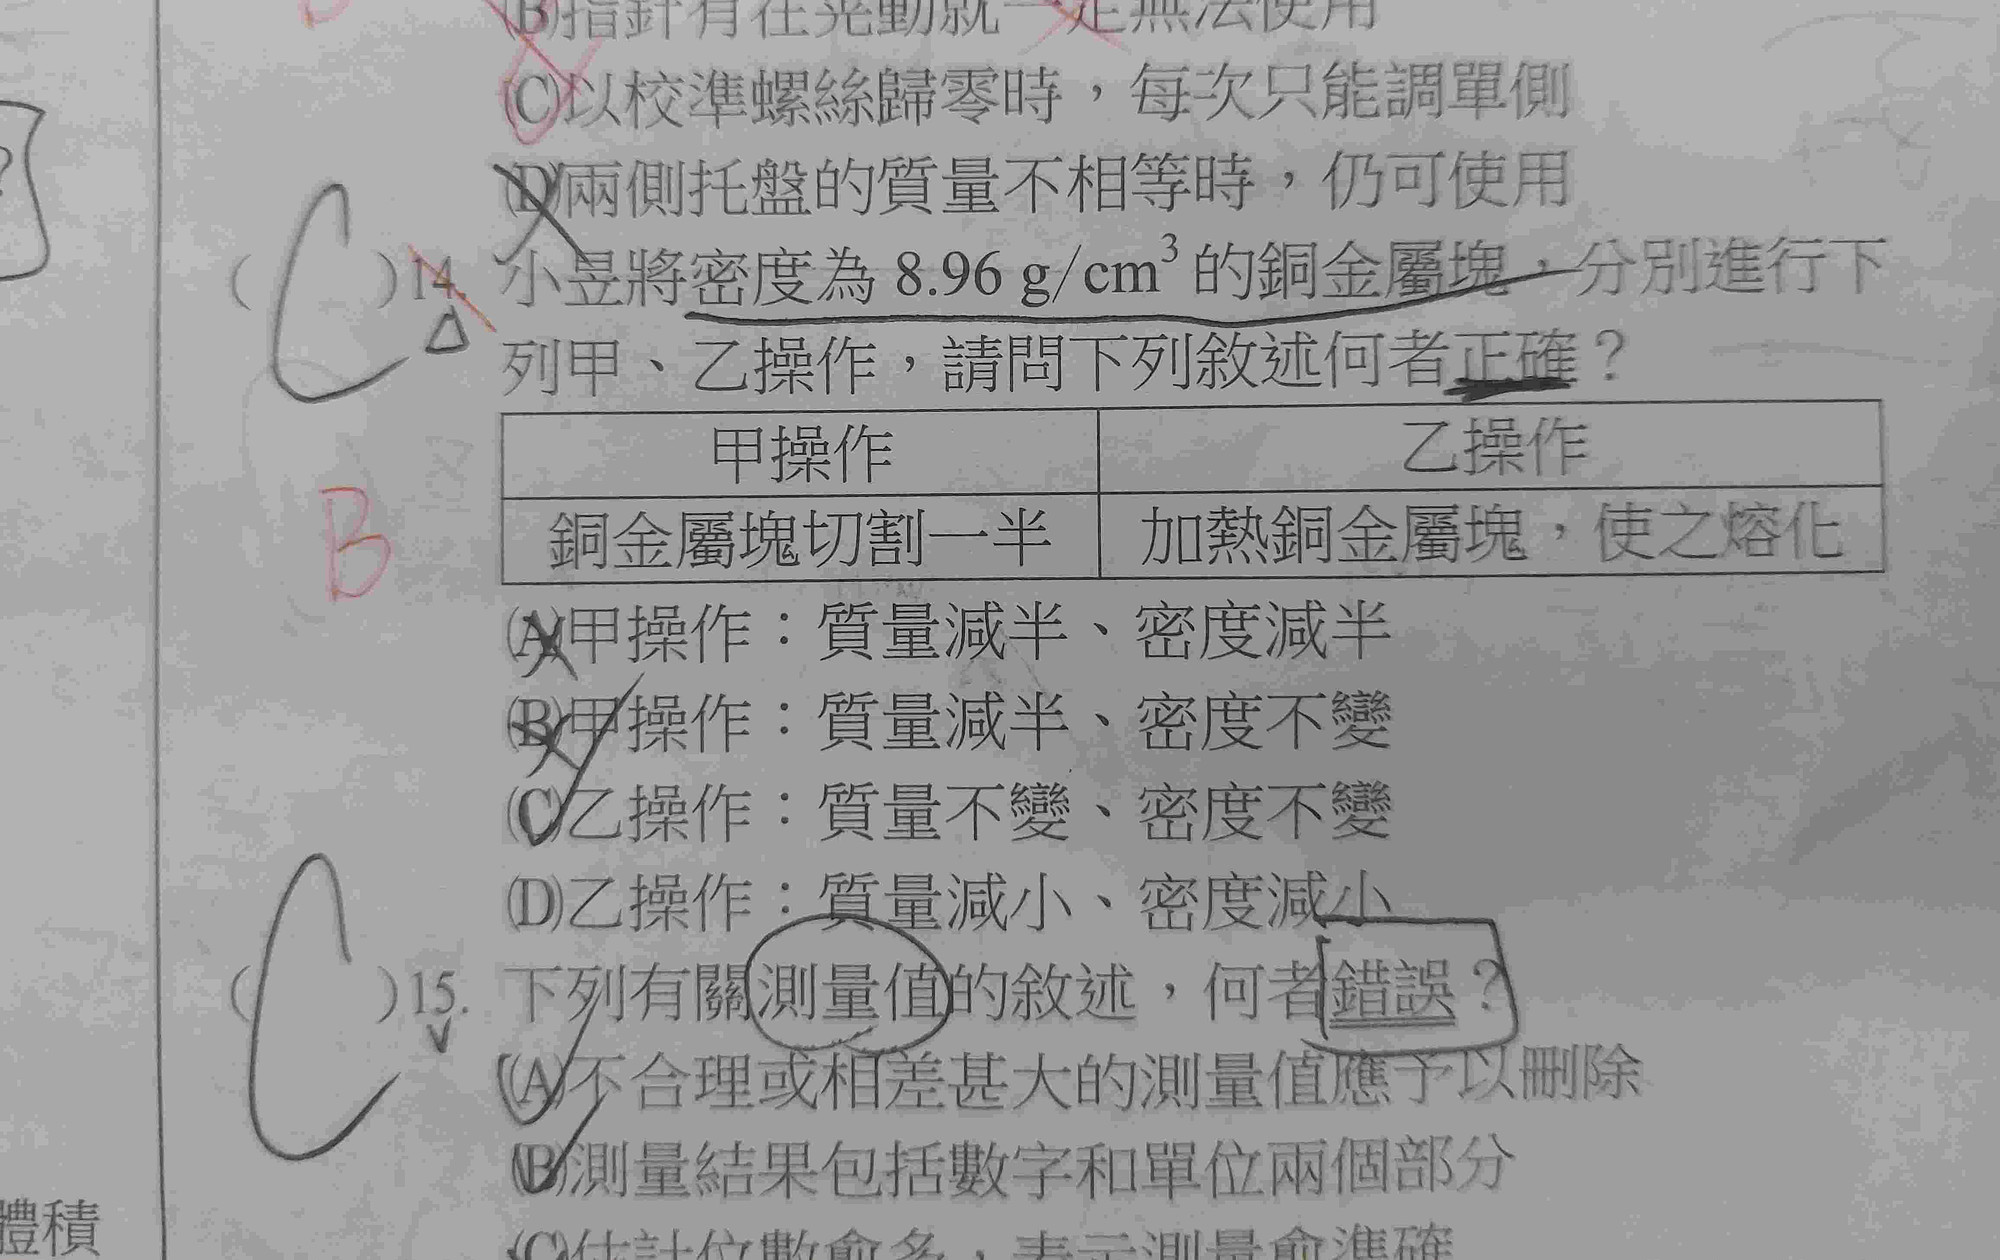 (B)指針有在晃動就一定無法使用
(C)以校準螺絲歸零時，每次只能調單側
(D)兩側托盤的質量不相等時，仍可使用
( C )14. 小昱將密度為 8.96 g/cm³ 的銅金屬塊，分別進行下
列甲、乙操作，請問下列敘述何者正確？
甲操作 乙操作
B
銅金屬塊切割一半 加熱銅金屬塊，使之熔化
(A)甲操作：質量減半、密度減半
(B)甲操作：質量減半、密度不變
(C)乙操作：質量不變、密度不變
(D)乙操作：質量減小、密度減小
( C )15. 下列有關測量值的敘述，何者錯誤？
(A)不合理或相差甚大的測量值應予以刪除
(B)測量結果包括數字和單位兩個部分
(C)估計位數愈多，表示測量愈準確
體積